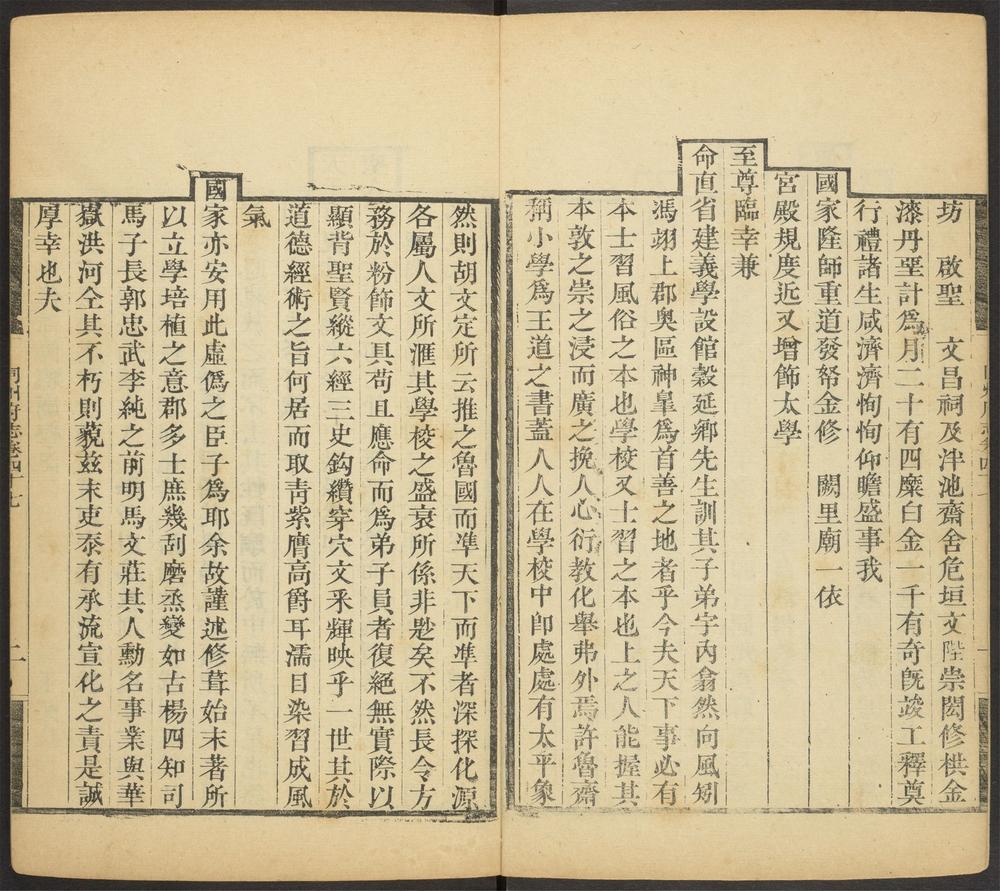 坊　啟聖　文昌祠及泮池齋舍危垣文陛崇閎修栱金
漆丹堊計爲月二十有四糜白金一千有奇旣竣工釋奠
行禮諸生咸濟濟恂恂仰瞻盛事我
國家隆師重道發帑金修　闕里廟一依
宮殿規度近又增飾太學
至尊臨幸兼
命直省建義學設館穀延鄉先生訓其子弟宇內翕然向風矧
馮翊上郡奥區神皐爲首善之地者乎今夫天下事必有
本士習風俗之本也學校又士習之本也上之人能握其
本敦之崇之浸而廣之挽人心衍教化舉弗外焉許魯齋
稱小學爲王道之書蓋人人在學校中卽處處有太平象
然則胡文定所云推之魯國而凖天下而凖者深探化源
各屬人文所滙其學校之盛衰所係非尠矣不然長令方
務於粉飾文具苟且應命而爲弟子員者復絕無實際以
顯背聖賢縱六經三史鈎纘穿穴文釆輝映乎一世其於
道德經術之旨何居而取靑紫膺高爵耳濡目染習成風
氣
國家亦安用此虛僞之臣子爲耶余故謹述修葺始末著所
以立學培植之意郡多士庶幾刮磨烝變如古楊四知司
馬子長郭忠武李純之前明馬文莊其人勳名事業與華
嶽洪河仝其不朽則藐茲末吏忝有承流宣化之責是誠
厚幸也夫
同州府志卷四十七
二